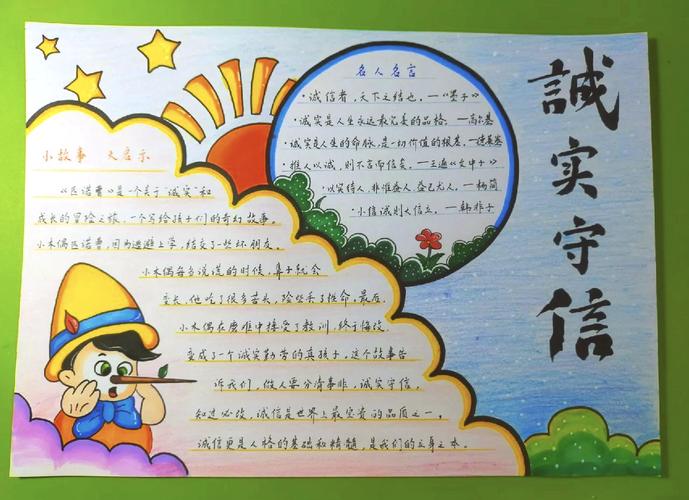 誠实守信
名人名言
·诚信者，天下之结也。—《墨子》
·诚实是人生永远最完美的品格。—高尔基
·诚实是人生的命脉，是一切价值的根基。—德莱塞
·推人以诚，则不言而信矣。—王通《文中子》
·以实待人，非惟益人，益己尤大。—杨简
·小信诚则大信立。—韩非子
小故事 大启示
《匹诺曹》是一个关于“诚实”和
成长的冒险之旅，一个写给孩子们的奇幻故事。
小木偶匹诺曹，因为逃避上学，结交了一些坏朋友。
小木偶每当说谎的时候，鼻子就会
变长，他吃了很多苦头，险些丢了性命，最后
小木偶在磨难中接受了教训，终于悔改，
变成了一个诚实勤劳的真孩子，这个故事告
诉我们，做人要分清事非，诚实守信，
知过必改，诚信是世界上最宝贵的品质之一，
诚信更是人格的基础和精髓，是我们的立身之本。